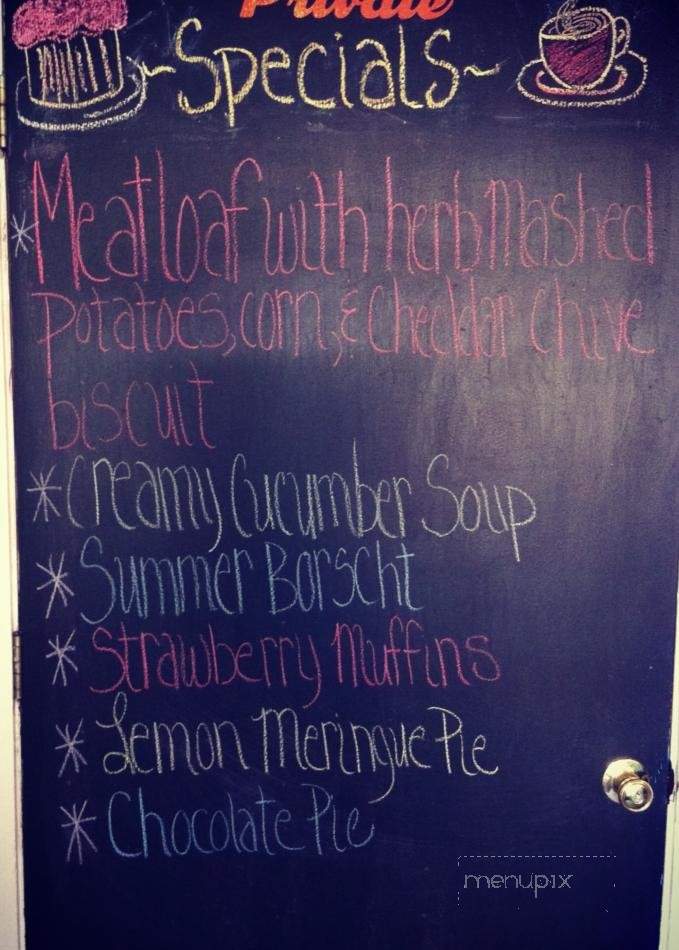 Private
~Specials~
* Meatloaf with herb Mashed
potatoes, corn, & cheddar chive
biscuit
* Creamy Cucumber Soup
* Summer Borscht
* Strawberry Muffins
* Lemon Meringue Pie
* Chocolate Pie
menupix